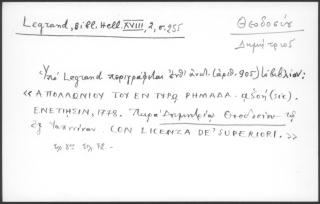 Legrand, Bibl. Hell. XVIII, 2, σ. 255
Θεοδοσίου
Δημήτριος
Ὑπὸ Legrand περιγράφεται (ἀριθ. 905) βιβλίον:
«ΑΠΟΛΛΩΝΙΟΥ ΤΟΥ ΕΝ ΤΥΡΩ ΡΗΜΑΔΑ (sic).
ΕΝΕΤΙΗΣΙΝ, 1778. Παρὰ Δημητρίῳ Θεοδοσίου τῷ
ἐξ Ἰωαννίνων. CON LICENZA DE' SUPERIORI.»